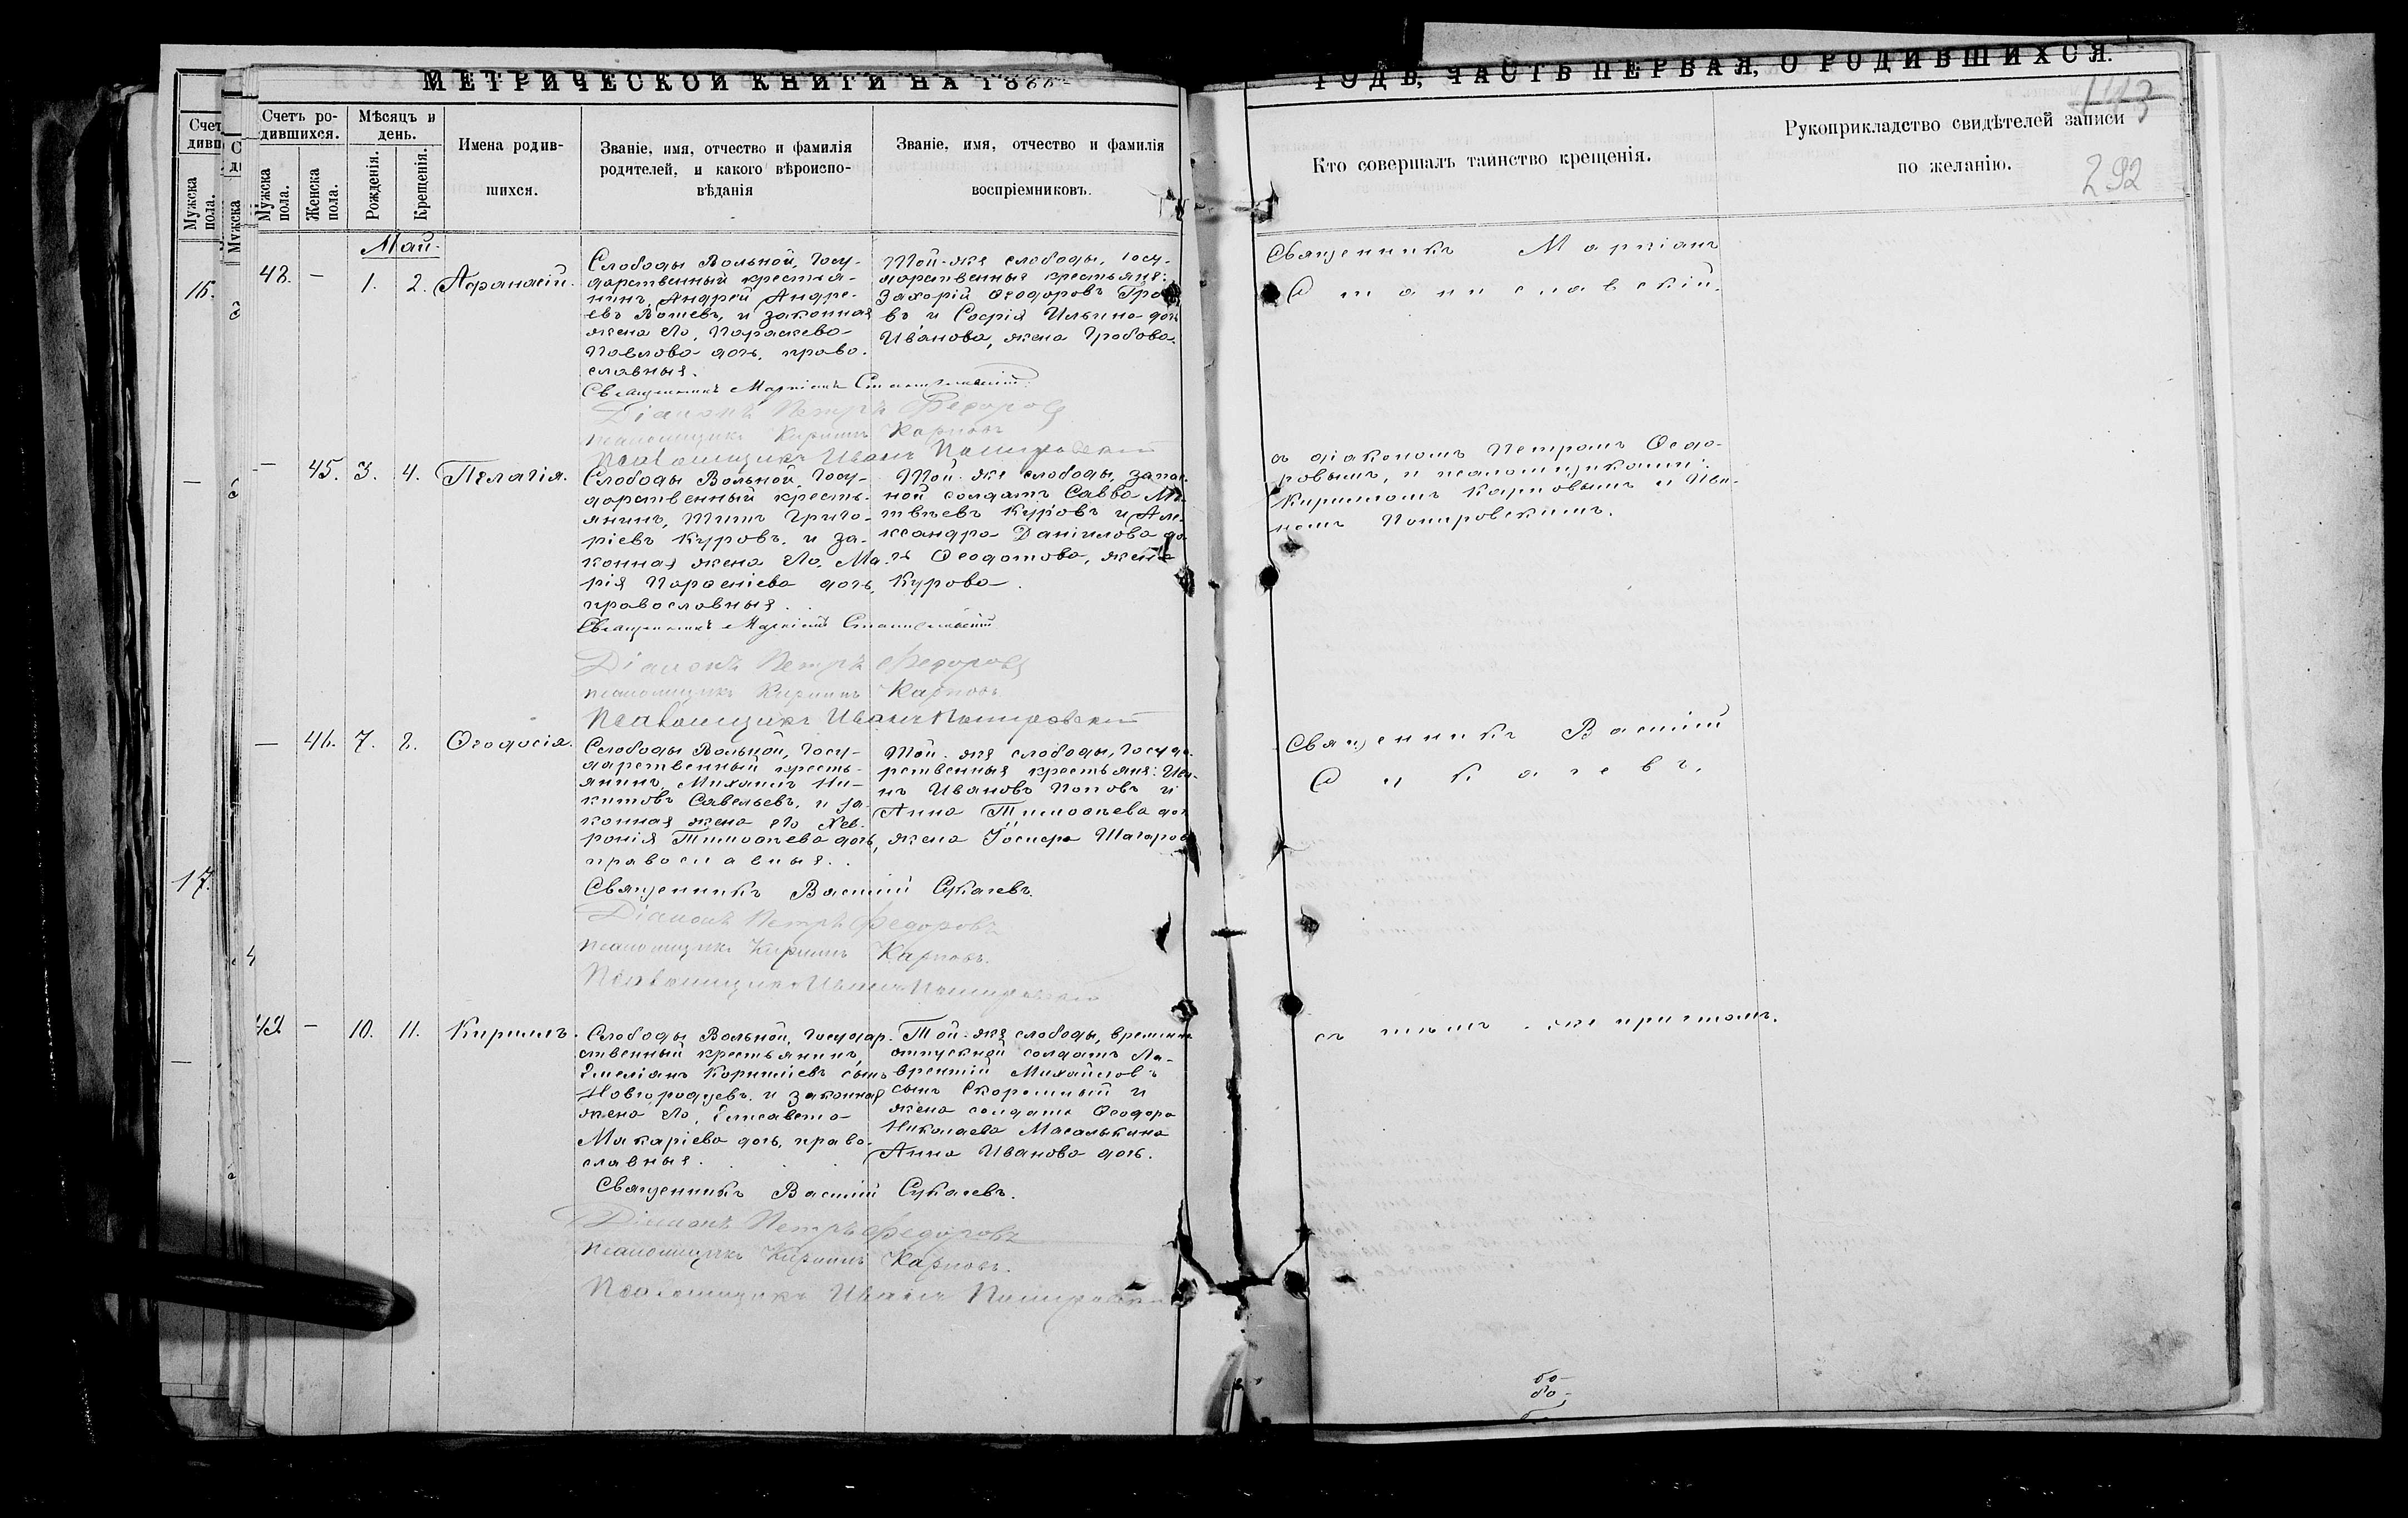 МЕТРИЧЕСКОЙ КНИГИ НА 186
ГОДЪ, ЧАСТЬ ПЕРВАЯ, О РОДИВШИХСЯ.
143
292
Счетъ ро-
дившихся.
Мужска
пола.
Женска
пола.
Мѣсяцъ и
день.
Рожденія.
Крещенія.
Имена родив-
шихся.
Званіе, имя, отчество и фамилія
родителей, и какого вѣроиспо-
вѣданія
Званіе, имя, отчество и фамилія
воспріемниковъ.
Кто совершалъ таинство крещенія.
Рукоприкладство свидѣтелей записи
по желанію.
Май.
48. — 1. 2. Аѳанасій.
Слободы Вольной, Госу-
дарственный крестья-
нинъ, Андрей Андре-
евъ и законная
жена его, Параскева
Павлова дочь, право-
славныя.
Священникъ Маркіанъ Станиславскій.
Діаконъ Петръ Федоровъ
псаломщикъ Кириллъ Карповъ
Псаломщикъ Иванъ
Той-же слободы, госу-
дарственныя крестьяне:
Захарій Ѳеодоровъ
въ и Софія Ильина дочь
Иванова, жена Гробова.
Священникъ Маркіанъ
Станиславскій.
— 45. 3. 4. Пелагія.
Слободы Вольной, Госу-
дарственный кресть-
янинъ, Титъ Григо-
ріевъ Куровъ, и за-
конная жена его, Ма-
рія дочь,
православныя.
Священникъ Маркіанъ Станиславскій
Діаконъ Петръ Федоровъ
псаломщикъ Кириллъ Карповъ
Псаломщикъ Иванъ
Той-же слободы, запас-
ной солдатъ Савва Ма-
твѣевъ Куровъ и Але-
ксандра Даніилова до-
чь Ѳеодотова, жена
Курова.
съ діакономъ Петромъ Ѳеодо-
ровымъ, и псаломщиками:
Кирилломъ Карповымъ и Ива-
номъ
— 46. 7. 8. Ѳеодосія.
Слободы Вольной, Госу-
дарственный кресть-
янинъ, Михаилъ Ни-
китовъ Савельевъ, и за-
конная жена его
Тимоѳеева дочь,
православныя.
Священникъ Василій Сукачевъ.
Діаконъ Петръ Федоровъ
псаломщикъ Кириллъ Карповъ.
Псаломщикъ Иванъ
Той-же слободы, госуда-
рственныя крестьяне: Ива-
нъ Ивановъ Поповъ и
Анна Тимоѳеева доч
жена
Священникъ Василій
Сукачевъ.
— 10. 11. Кириллъ.
Слободы Вольной, Государ-
ственный крестьянинъ,
Емеліанъ Корниліевъ сынъ
Новгородцевъ, и законная
жена его, Елисавета
Макаріева дочь, право-
славныя.
Священникъ Василій Сукачевъ.
Діаконъ Петръ Федоровъ
псаломщикъ Кириллъ Карповъ.
Псаломщикъ Иванъ
Той-же слободы, временно
отпускной солдатъ Ла-
врентій Михайловъ
сынъ и
жена солдата Ѳеодора
Николаева Масалыкина
Анна Иванова дочь.
съ тѣмъ-же причтомъ.
16.
17.